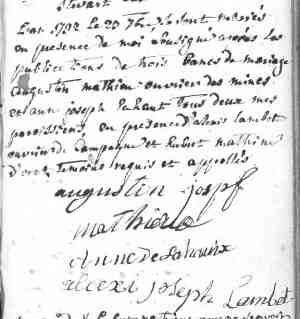 L'an 1792 le 23 7bre se sont mariés
en presence de moi soussigné après les
publications de trois bancs de mariage
augustin mathieu ouvrier des mines
et ann joseph tous deux mes
paroissiens, en presence d'alexis lambot
ouvrier de campagne et hubert mathieu
temoins requis et appellés
augustin josepf
mathieu
Anne de
alexi joseph Lambot